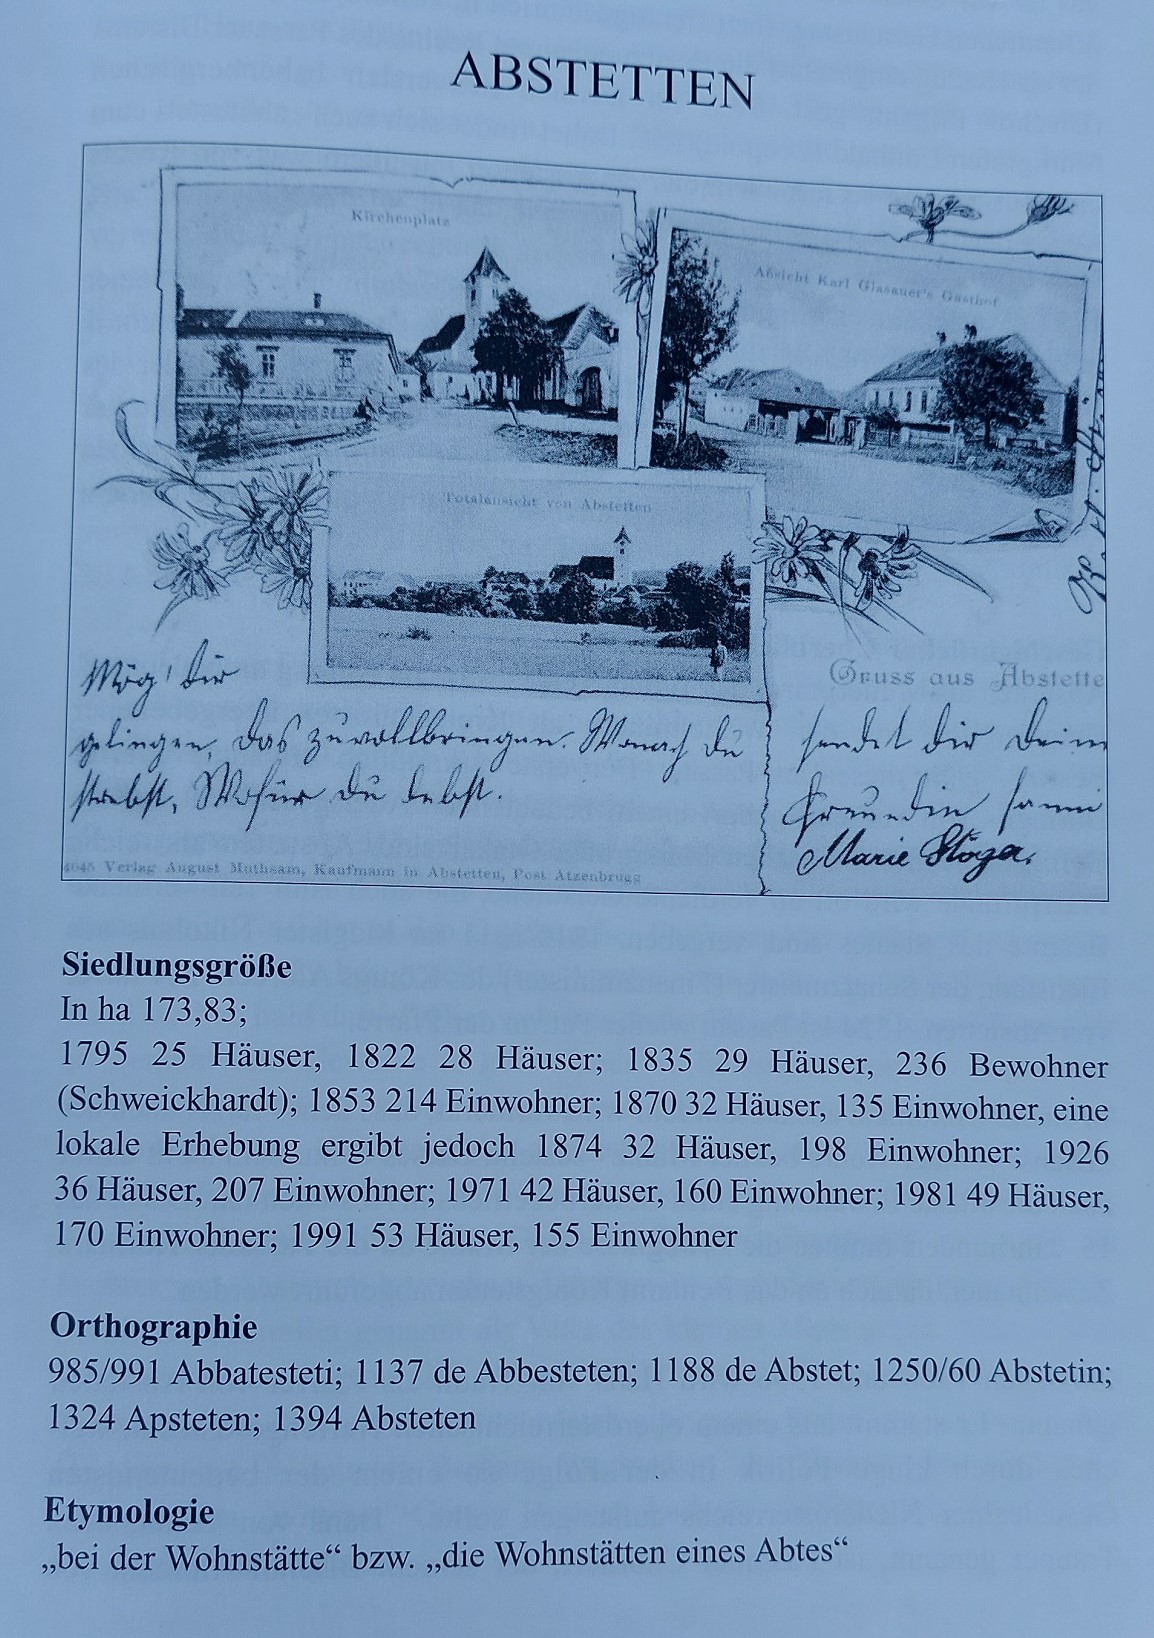 ABSTETTEN
Kirchenplatz
Ansicht Karl Glasauer's Gasthof
Totalansicht von Abstetten
Mög' dir
gelingen, das zu vollbringen. Wonach du
strebst, Wofür du lebst.
Gruss aus Abstette
sendet dir deine
Freundin
Marie Stöger.
4045 Verlag August Muthsam, Kaufmann in Abstetten, Post Atzenbrugg
Siedlungsgröße
In ha 173,83;
1795 25 Häuser, 1822 28 Häuser; 1835 29 Häuser, 236 Bewohner
(Schweickhardt); 1853 214 Einwohner; 1870 32 Häuser, 135 Einwohner, eine
lokale Erhebung ergibt jedoch 1874 32 Häuser, 198 Einwohner; 1926
36 Häuser, 207 Einwohner; 1971 42 Häuser, 160 Einwohner; 1981 49 Häuser,
170 Einwohner; 1991 53 Häuser, 155 Einwohner
Orthographie
985/991 Abbatesteti; 1137 de Abbesteten; 1188 de Abstet; 1250/60 Abstetin;
1324 Apsteten; 1394 Absteten
Etymologie
„bei der Wohnstätte“ bzw. „die Wohnstätten eines Abtes“